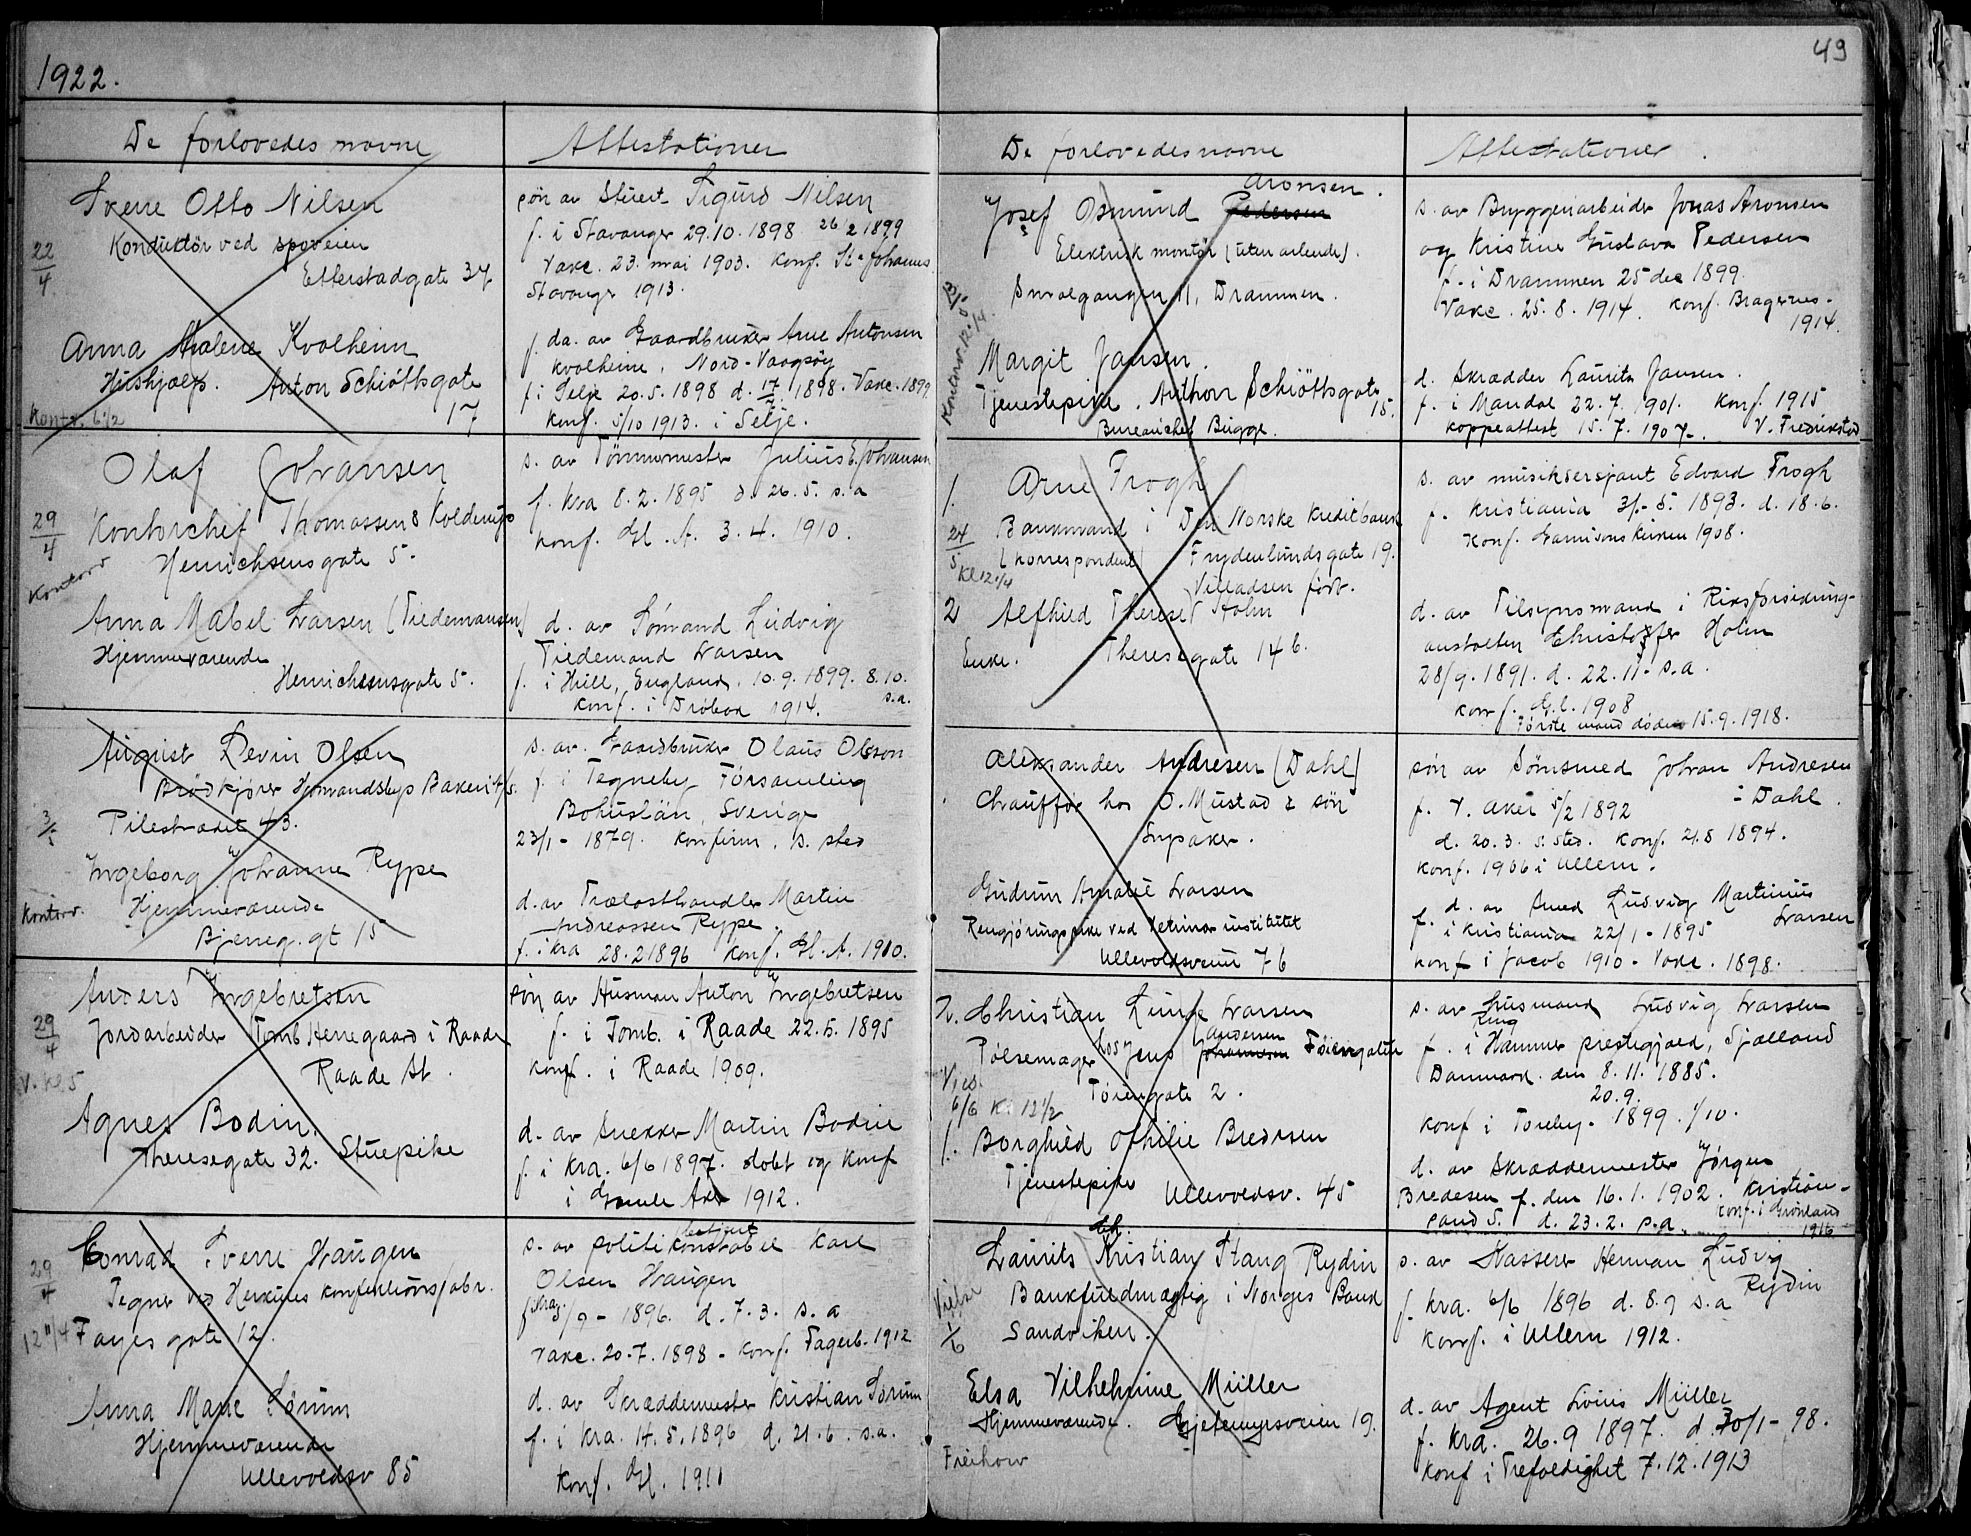 1922.
De forlovedes navne
Attestationer
Sverre Otto Nilsen
22/4
Konduktör ved sporveien
Etterstadgate 37
Anna Malene Kvalheim
Hushjælp. Anton Schiöttsgate
17
Kontor. 6 1/2
søn av Stuert Sigurd Nilsen
f. i Stavanger 29.10.1898 26/2 1899
Vakc. 23. mai 1903. Konf. St. Johannes
Stavanger 1913.
f. da. av Gaardbruker Arne Antonsen
Kvalheim, Nord-Vaagsöy
f i Selje 20.5.1898 d. 17/7 1898. Vakc. 1899
Konf. 5/10 1913. i Selje.
Olaf Johansen
29/4
Kontorchef Thomassen & Kolderup
Henrichsensgate 5.
Kontoro
Anna Mabel Larsen (Tiedemansen)
Hjemmeværende
Henrichsensgate 5.
s. av Tömmermester Julius E. Johansen
f. Kra 8.2.1895 d. 26.5. s.a
Konf. Gl. A. 3.4.1910.
d. av Sömand Ludvig
Tiedemand Larsen
f. i Hull, England. 10.9.1899. 8.10.
s.a.
Konf. i Dröbak 1914.
August Levin Olsen
Brödkjörer
Pilestrædet 43.
3/5
Ingeborg Johanne Rype
Kontoro. Hjemmeværende
Bjerreg. gt 15
s. av. Gaardbruker Olaus Olsson
f. i Tegneby Församling
Bohuslän, Sverige
23/1 - 1879. Konfirm. s. sted
d. av Trælasthandler Martin
Andreassen Rype
f. i Kra 28.2 1896 Konf. Gl. A. 1910.
Anders Ingebretsen
29/4
Jordarbeider Tomb Herregaard i Raade
Raade St.
V. Kl. 5
Agnes Bodin.
Theresegate 32. Stuepike
søn av Husman Anton Ingebretsen
f. i Tomb. i Raade 22.5.1895
Konf. i Raade 1909.
d. av Snekker Martin Bodin
f. i Kra. 6/6 1897. döbt og Konf
i Gamle Aker 1912.
Conrad Sverre Haugen
29/4
Tegner ved Herkules Konfektionsfabr.
Fayes gate 12.
Anna Marie Sörum
Hjemmeværende
Ullevoldsv 85
betjent
s. av politikonstabel Karl
Olsen Haugen
- 1896. d. 7.3. s.a
Vakc. 20.7.1898 - Konf. Fagerb. 1912
d. av Skræddermester Kristian Sörum
f. i Kra. 14.5.1896 d. 21.6. s.a.
Konf. Gl. 1911
49
De forlovedes navne
Attestationer.
Aronsen.
Josef Osmund Pedersen
Elektrisk montör (uten arbeide).
Smalgangen 11, Drammen.
Margit Jansen.
Tjenestepike. Anthon Schiöttsgate
15.
Bureauchef Bugge.
s. av Bryggeriarbeider Jonas Aronsen
og Kristine Gustava Pedersen
f. i Drammen 25 des 1899
Vakc. 25.8.1914. Konf. Bragernes.
1914.
d. Skrædder Laurits Jansen.
f. i Mandal 22.7.1901. Konf. 1915
Koppeattest 15.7.1907. V. Fredrikstad
1. Arne Frogh
24/5
Bankmand i Den Norske Kreditbank
(Korrespondent) Frydenlundsgate 19.
Kl 12 1/4
Villadsen födt.
2 Alfhild Therese Holm
Enke. Theresegate 14 b.
s. av musiksersjant Edvard Frogh
f. Kristiania 31.5.1893. d. 18.6.
Konf. Garnisonskirken 1908.
d. av Tilsynsmand i Riksforsikrings-
anstalten Christoffer Holm
28/9.1891. d. 22.11. s.a.
Konf. Gl. 1908
Første mand döde 15.9.1918.
Aleksander Andresen (Dahl)
Chauffør hos O. Mustad & sön
Lysaker.
Gudrun Amalie Larsen
Rengjöringspike ved Veterinærinstitutet
Ullevoldsveien 76
søn av Sömsmed Johan Andresen
- Dahl.
f. V. Aker 5/2 1892
d. 20.3. s. sted. Konf. 21.8 1894.
Konf. 1906 i Ullern.
d. av Smed Ludvig Martinius
Larsen
f. i Kristiania 22/1 - 1895
Konf i Jacob 1910 - Vakc. 1898.
2. Christian Lunge Larsen
Andersen
Pølsemager hos Jens Johannesen Töiengaten
Töiengate 2.
6/6 Kl 12 1/2
1. Borghild Othilie Bredesen
Tjenestepike Ullevoldsv. 45
s. av Husmand Ludvig Larsen
f. i Hammer prestegjæld, Sjælland
Danmark. den 8.11.1885.
20.9.
Konf i Toreby. 1899. 1/10.
d. av Skræddermester Jörgen
Bredesen f. den 16.1.1902. Kristian-
sand S. d. 23.2. s.a. Konf. i Grönland
1916
Ch
Laurits Kristian Stang Rydin
Vielse
1/6
Bankfuldmægtig i Norges Bank
Sandviken.
Elsa Vilhelmine Müller
Hjemmeværende. Gjetemyrsveien 19.
s. av Kasserer Herman Ludvig
Rydin
f. Kra. 6/6 1896 d. 8.9 s.a
Konf. i Ullern 1912.
d. av Agent Louis Müller
f. Kra. 26.9 1897. d. 30/1 - 98.
Konf i Trefoldighet 7.12.1913